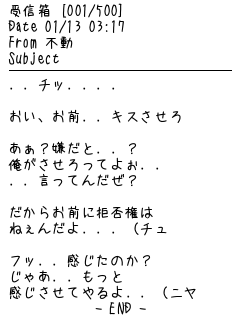 受信箱 [001/500]
Date 01/13 03:17
From 不動
Subject
．．チッ．．．．
おい、お前．．キスさせろ
あぁ？嫌だと．．？
俺がさせろってよぉ．．
．．言ってんだぜ？
だからお前に拒否権は
ねぇんだよ．．．（チュ
フッ．．感じたのか？
じゃあ．．もっと
感じさせてやるよ．．（ニヤ
- END -